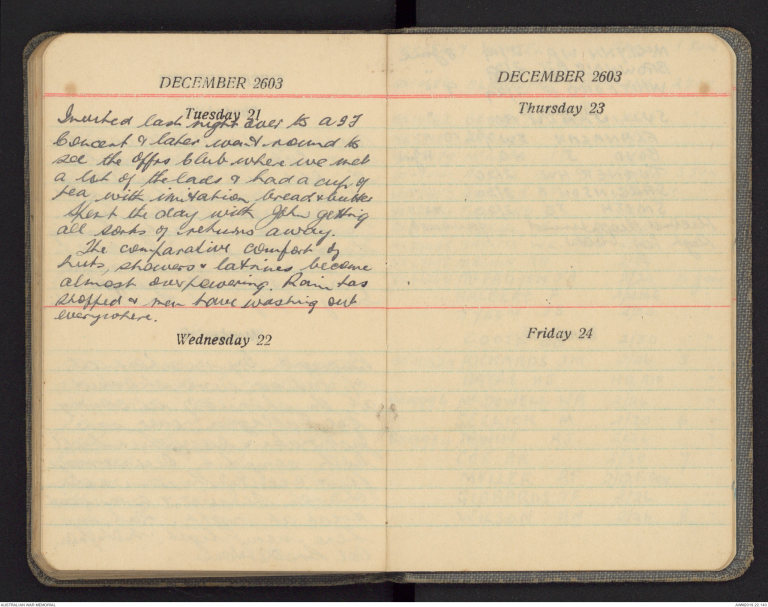 DECEMBER 2603
Tuesday 21
Invited last night over to AIF
Concert & later went round to
see the Offrs Club where we met
a lot of the lads & had a cup of
tea with imitation bread & butter
Spent the day with John getting
all sorts of returns away.
The comparative comfort of
huts, showers & latrines become
almost overpowering. Rain has
stopped & men have washing out
everywhere.
Wednesday 22
DECEMBER 2603
Thursday 23
Friday 24
AUSTRALIAN WAR MEMORIAL